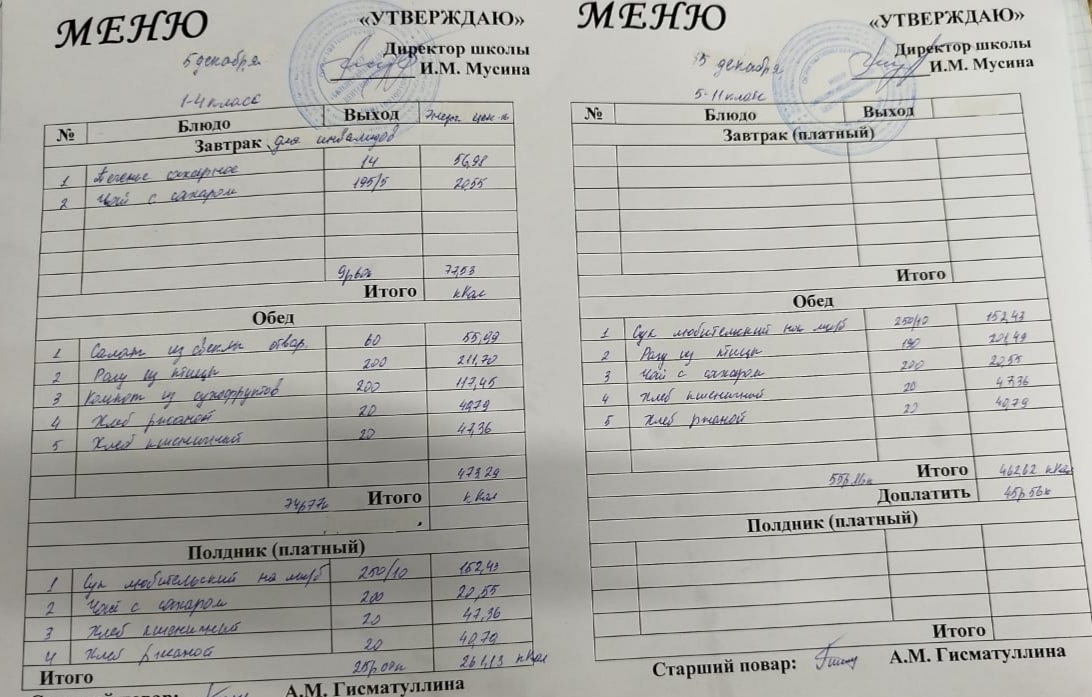 МЕНЮ
«УТВЕРЖДАЮ»
Директор школы
И.М. Мусина
5 декабря
1-4 класс
№ Блюдо Выход Энерг. цен-ь
Завтрак для инвалидов
1 Печенье сахарное 14 56,98
2 Чай с сахаром 195/5 20,55
77,53
Итого кКал
Обед
1 Салат из свеклы отвар. 60 55,99
2 Рагу из птицы 200 211,70
3 Компот из сухофруктов 200 117,45
4 Хлеб ржаной 20 40,79
5 Хлеб пшеничный 20 47,36
473,29
74р77к Итого кКал
Полдник (платный)
1 Суп любительский на м/б 250/10 152,43
2 Чай с сахаром 200 20,55
3 Хлеб пшеничный 20 47,36
4 Хлеб ржаной 20 40,79
Итого 25р00к 261,13 кКал
А.М. Гисматуллина
МЕНЮ
«УТВЕРЖДАЮ»
Директор школы
И.М. Мусина
5 декабря
5-11 класс
№ Блюдо Выход
Завтрак (платный)
Итого
Обед
1 Суп любительский на м/б 250/10 152,43
2 Рагу из птицы 190 201,49
3 Чай с сахаром 200 20,55
4 Хлеб пшеничный 20 47,36
5 Хлеб ржаной 20 40,79
Итого 462,62 кКал
Доплатить 45р56к
Полдник (платный)
Итого
Старший повар: А.М. Гисматуллина